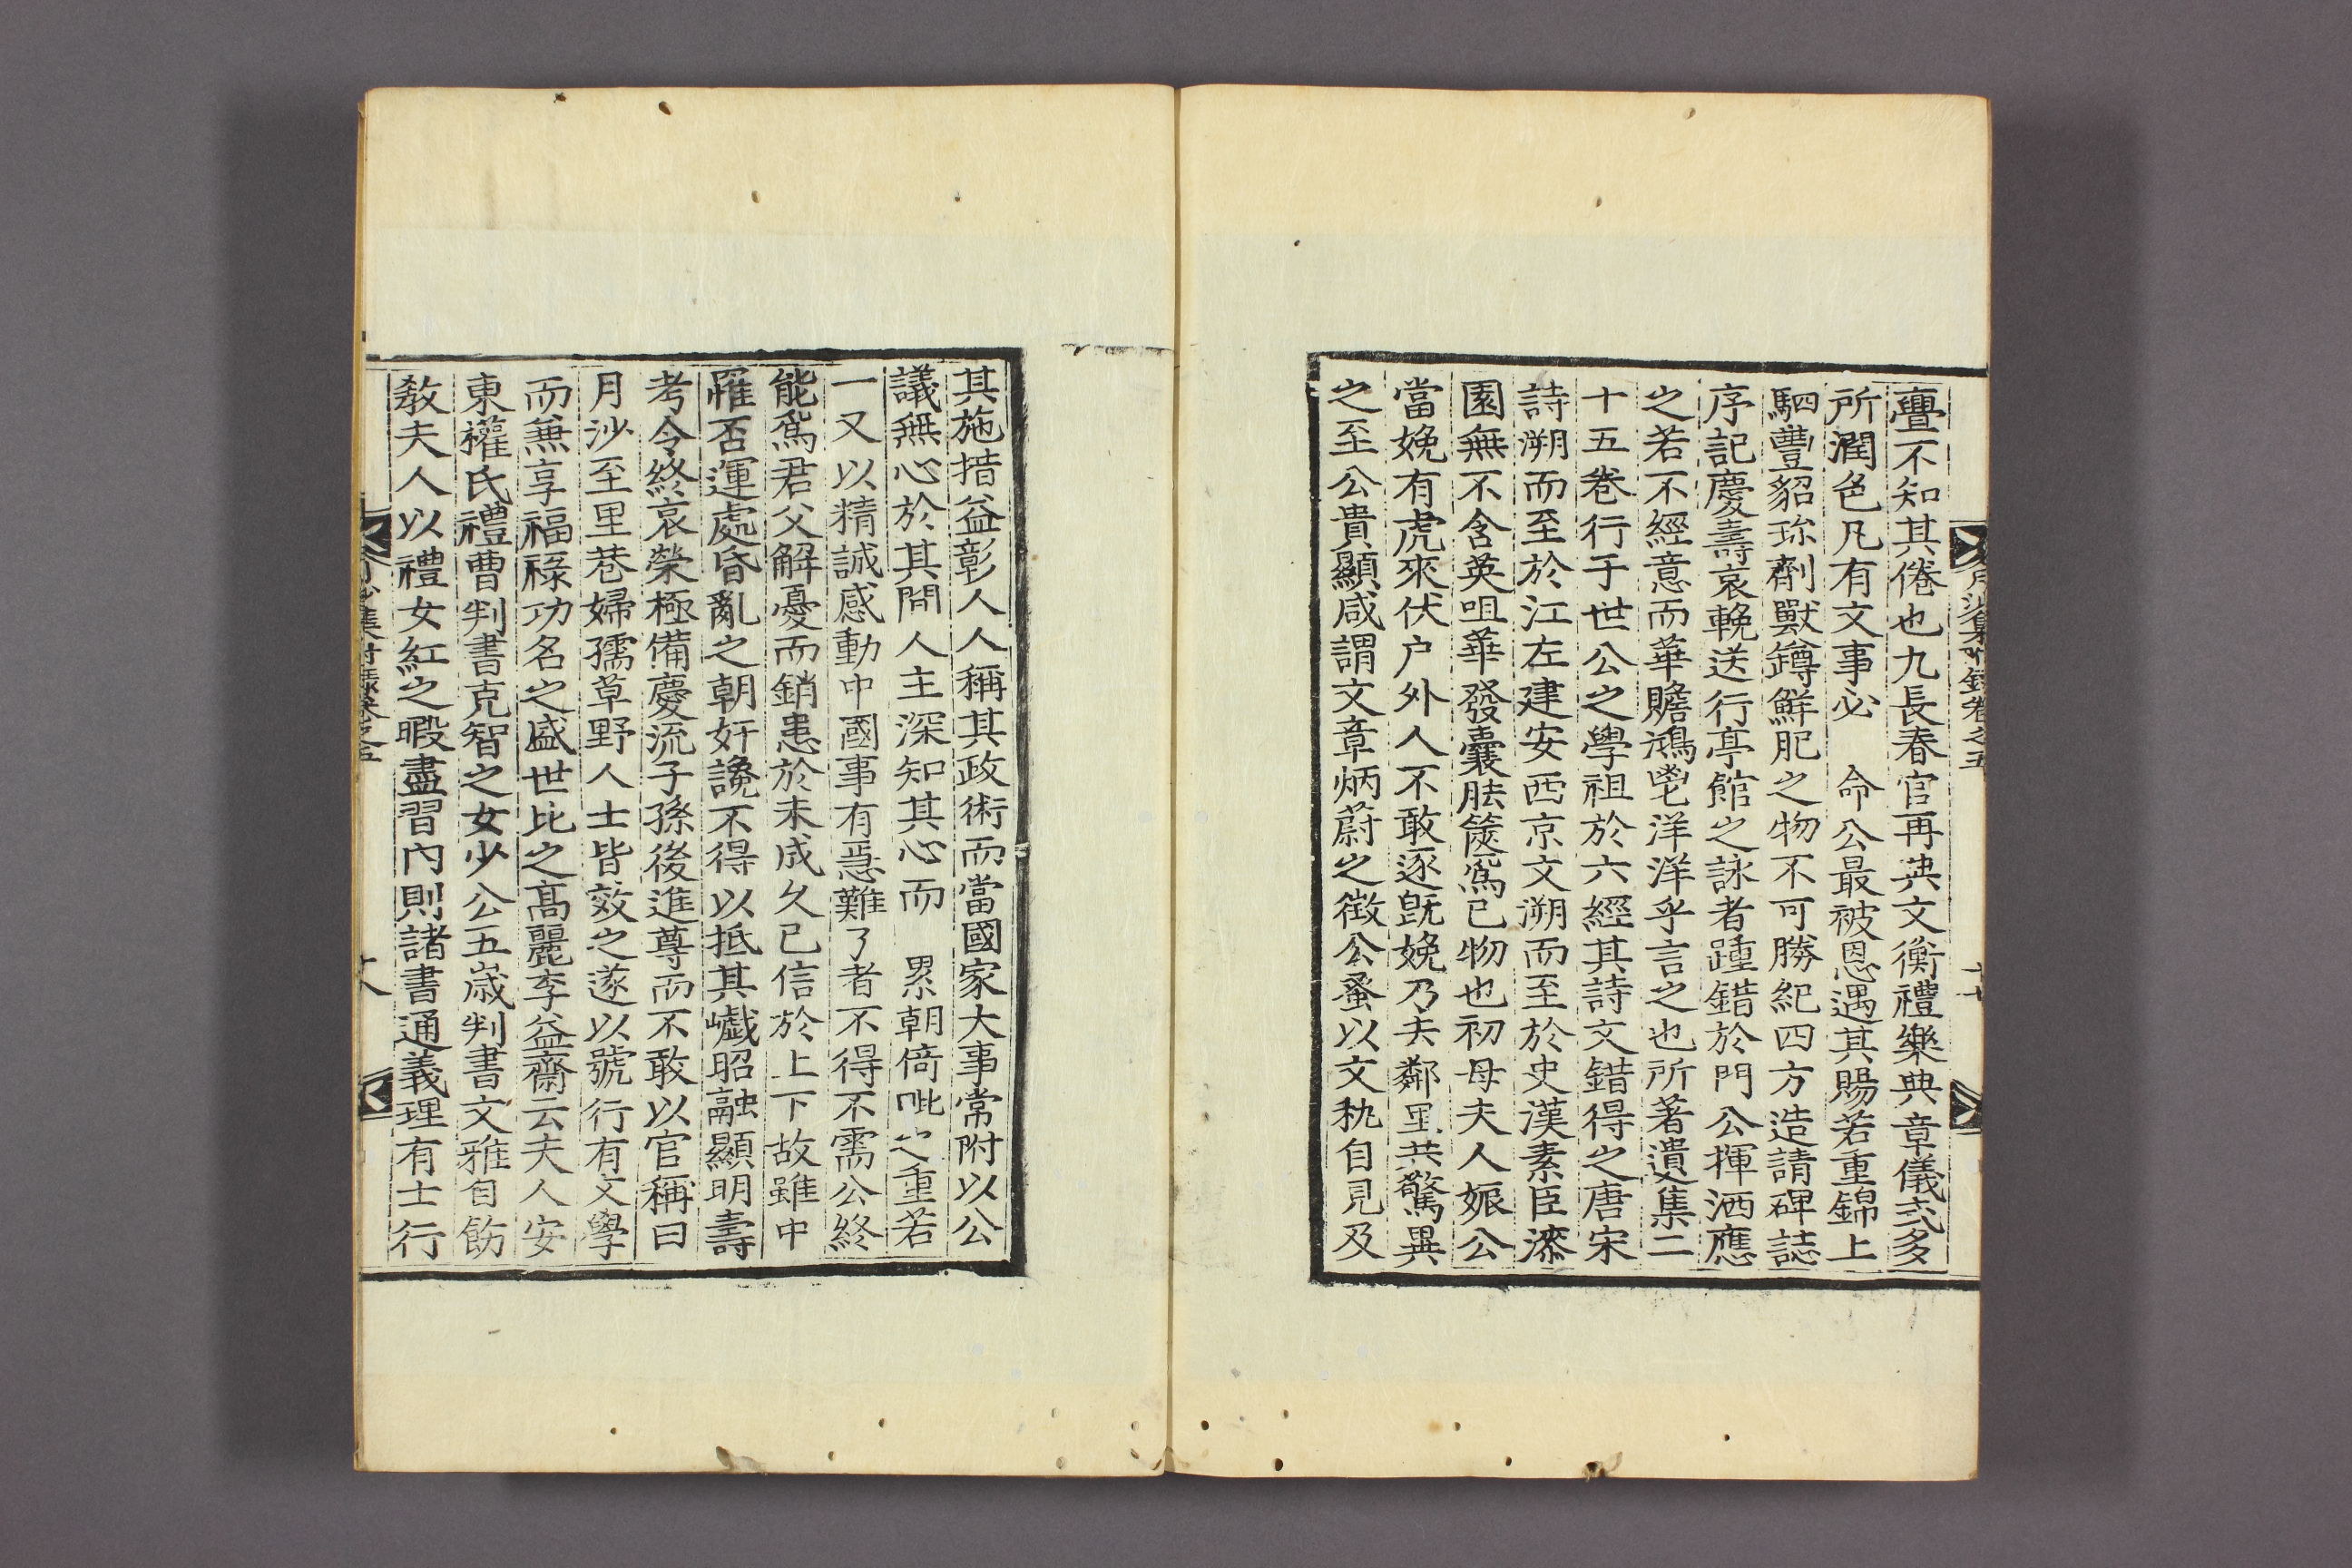 亹不知其倦也九長春官再典文衡禮樂典章儀式多
所潤色凡有文事必　命公最被恩遇其賜若重錦上
駟豐貂珎劑獸鐏鮮肥之物不可勝紀四方造請碑誌
序記慶壽哀輓送行亭館之詠者踵錯於門公揮洒應
之若不經意而華贍鴻鬯洋洋乎言之也所著遺集二
十五卷行于世公之學祖於六經其詩文錯得之唐宋
詩溯而至於江左建安西京文溯而至於史漢素臣漆
園無不含英咀華發囊胠篋爲己物也初母夫人娠公
當娩有虎來伏户外人不敢逐旣娩乃去鄰里共驚異
之至公貴顯咸謂文章炳蔚之徵公蚤以文埶自見及
其施措益彰人人稱其政術而當國家大事常附以公
議無心於其間人主深知其心而　累朝倚毗之重若
一又以精誠感動中國事有急難了者不得不需公終
能爲君父解憂而銷患於未成久已信於上下故雖中
罹否運處昏亂之朝奸讒不得以抵其巇昭融顯明壽
考令終哀榮極備慶流子孫後進尊而不敢以官稱曰
月沙至里巷婦孺草野人士皆效之遂以號行有文學
而兼享福祿功名之盛世比之高麗李益齋云夫人安
東權氏禮曹判書克智之女少公五歲判書文雅自飭
敎夫人以禮女紅之暇盡習內則諸書通義理有士行
月沙集附錄卷之五